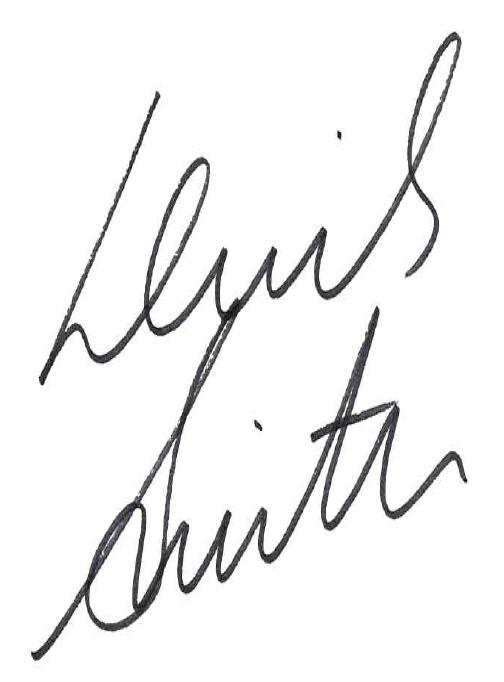 Lewis
Smith